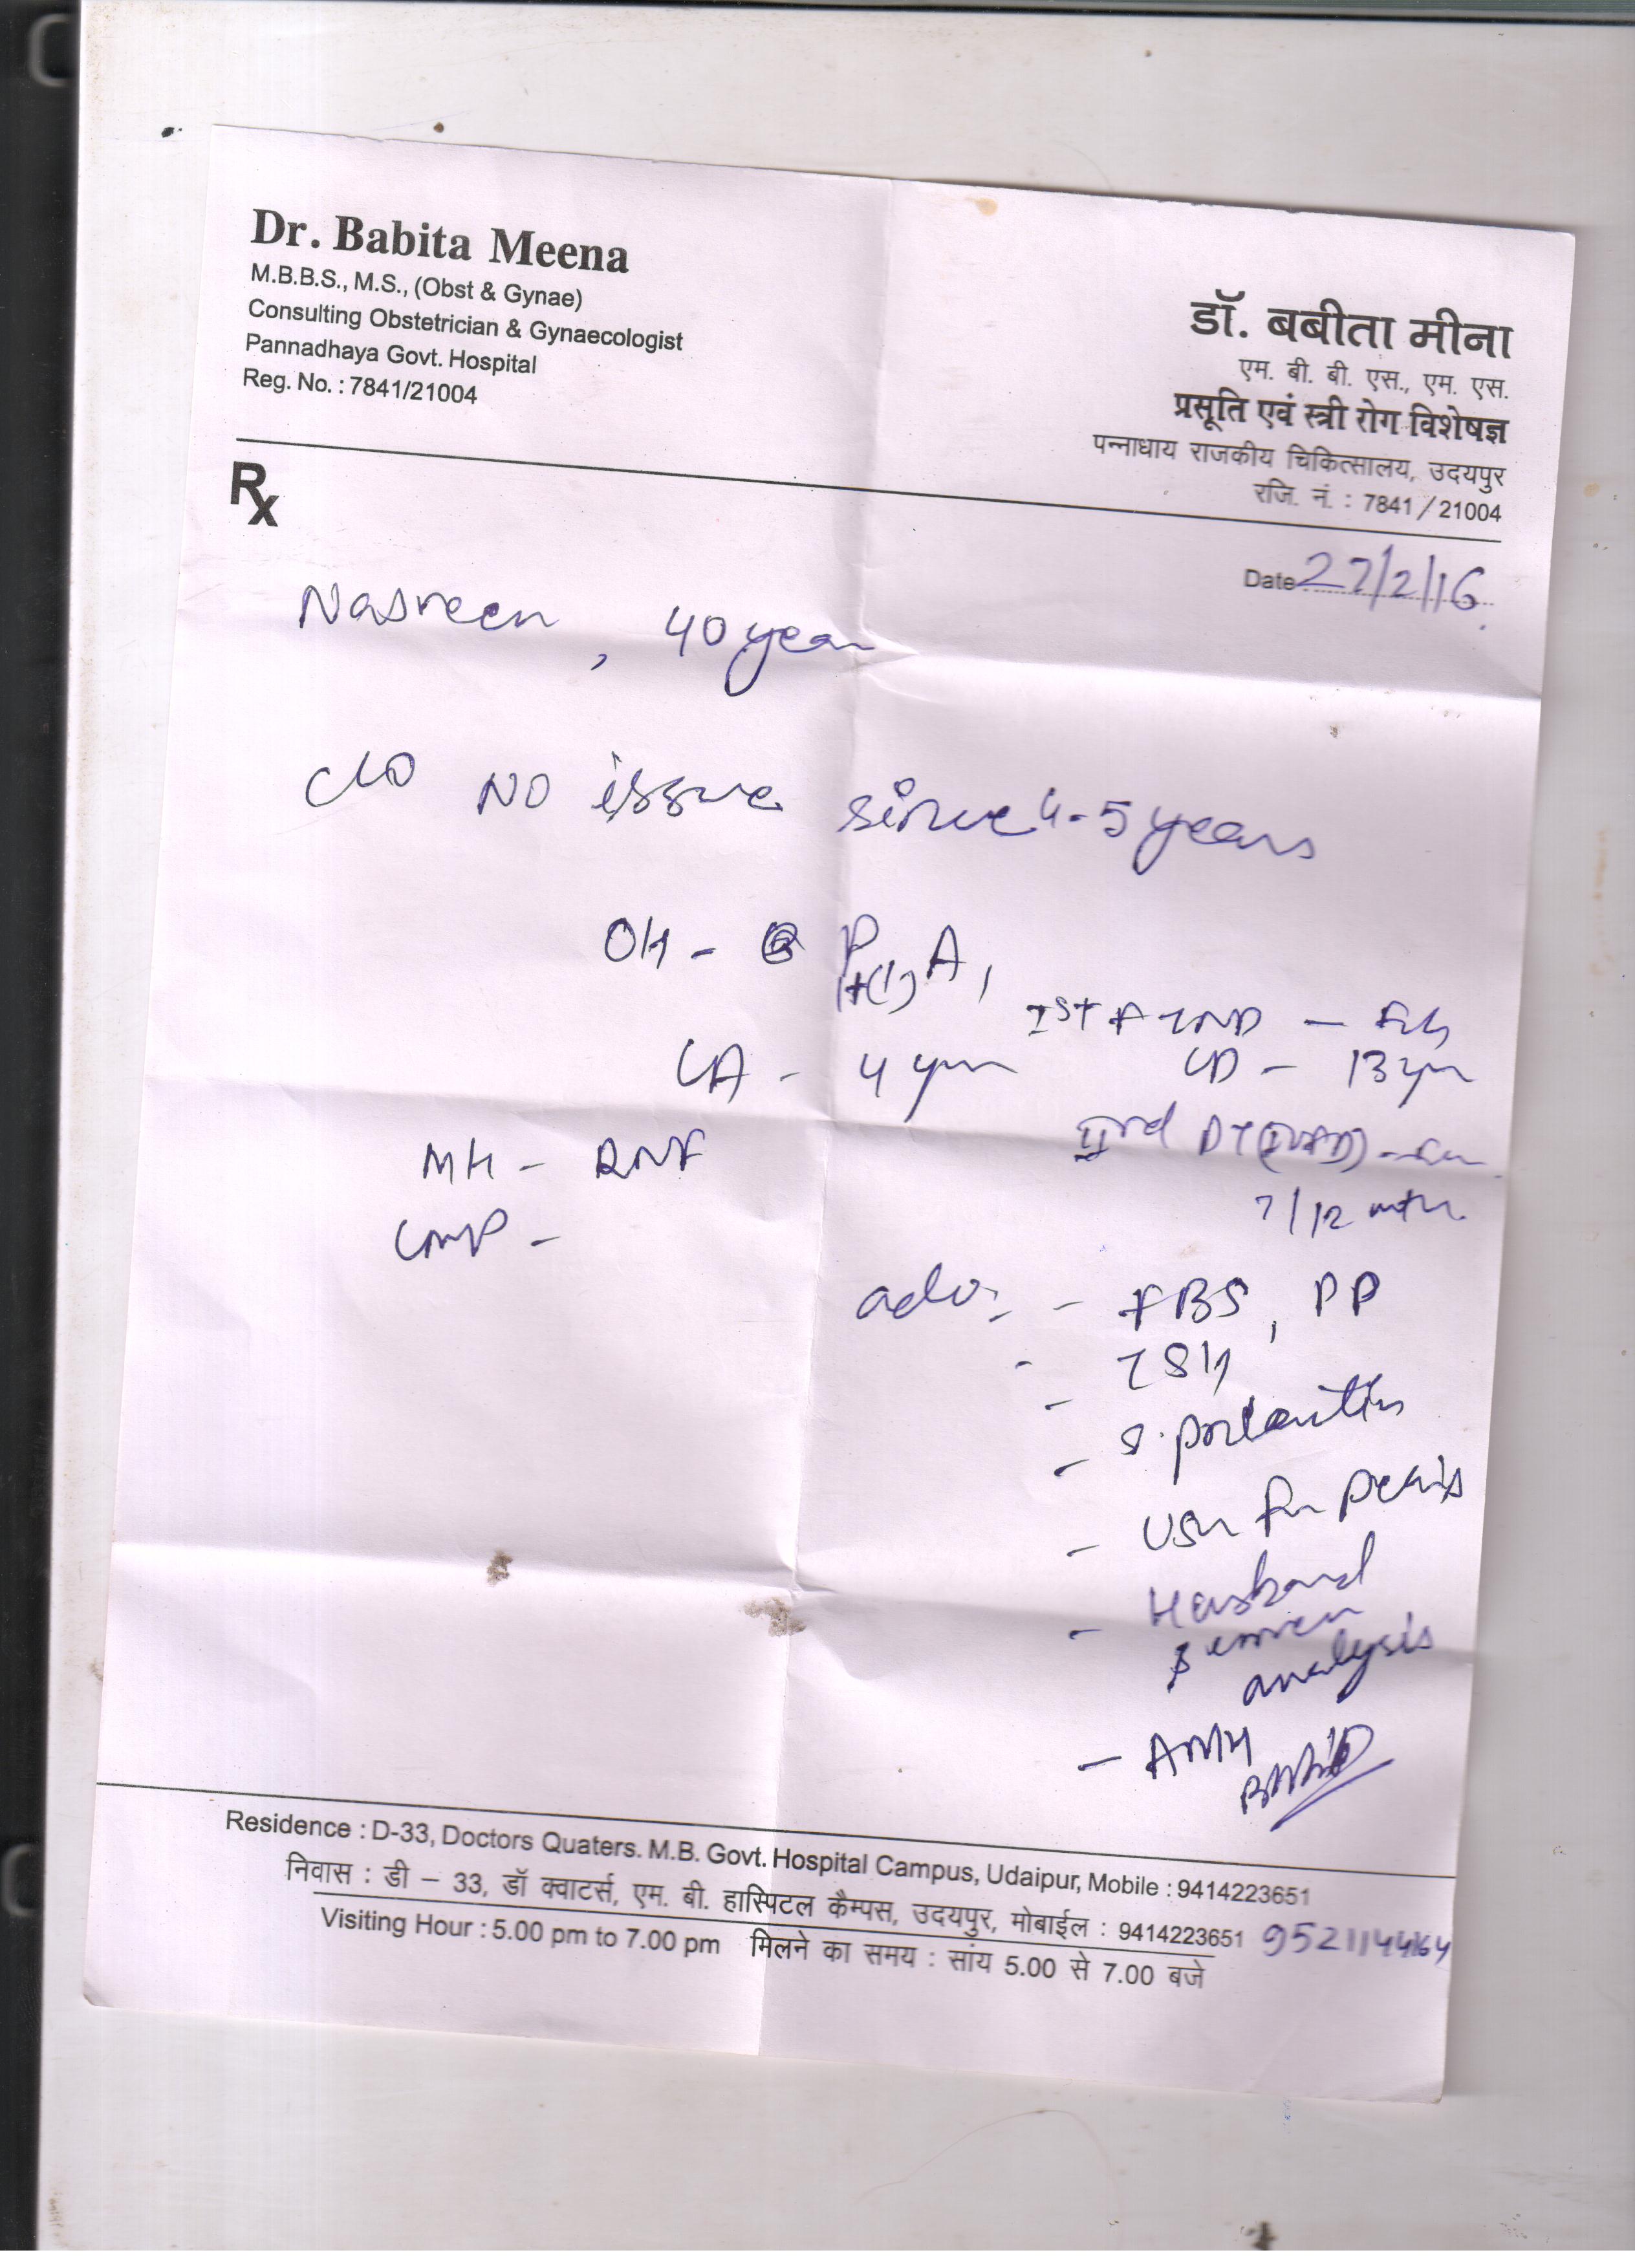 Dr. Babita Meena
M.B.B.S., M.S., (Obst & Gynae)
Consulting Obstetrician & Gynaecologist
Pannadhaya Govt. Hospital
Reg. No. : 7841/21004
डॉ. बबीता मीना
एम. बी. बी. एस., एम. एस.
प्रसूति एवं स्त्री रोग विशेषज्ञ
पन्नाधाय राजकीय चिकित्सालय, उदयपुर
रजि. नं. : 7841 / 21004
Rx
Date 27/2/16
Nasreen, 40 year
C/O NO issue since 4-5 years
OH - P1+(1) A1
IST FTND -
LA - 4 yrs
LD - 13 yrs
IInd PT(IUFD) -
7/12 mth
MH - RNF
LMP -
adv. - FBS, PP
- TSH
- S. prolactin
- USG for pelvis
- Husband
semen
analysis
- AMH
Residence : D-33, Doctors Quaters. M.B. Govt. Hospital Campus, Udaipur, Mobile : 9414223651
निवास : डी – 33, डॉ क्वाटर्स, एम. बी. हास्पिटल कैम्पस, उदयपुर, मोबाईल : 9414223651 9521144164
Visiting Hour : 5.00 pm to 7.00 pm मिलने का समय : सांय 5.00 से 7.00 बजे